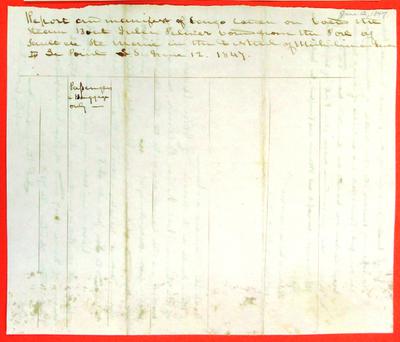 June 12, 1847
Report and manifest of Cargo taken on board the
Steam Boat Julia Palmer bound from the Port of
Sault de Ste Marie in the District of Michilimackinac
to La Point L. S. June 12. 1847.
Passengers
& Baggage
only —